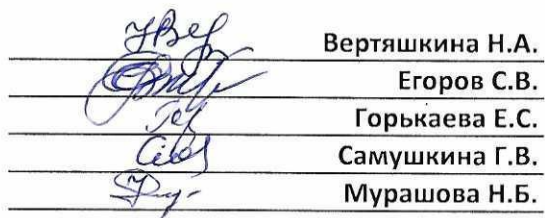 Вертяшкина Н.А.
Егоров С.В.
Горькаева Е.С.
Самушкина Г.В.
Мурашова Н.Б.